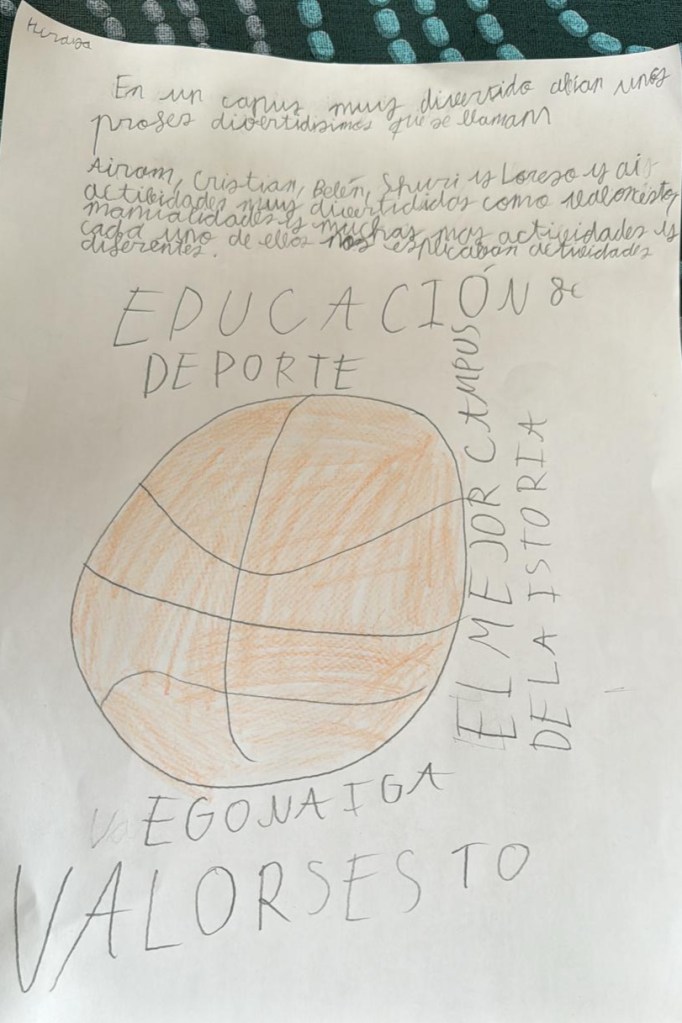 En un capus muy divertido abían unos
profes divertidisimos que se llamam
Airam, Cristian, Belén, Shuri y Loreso y ai
actibidades muy divertididas como valorsesto,
manualidades y muchas mas actividades y
cada uno de ellos nos esplicaban actividades
diferentes.
EDUCACIÓN &
DEPORTE
EL MEJOR CAMPUS
DE LA ISTORIA
EGONAIGA
VALORSESTO